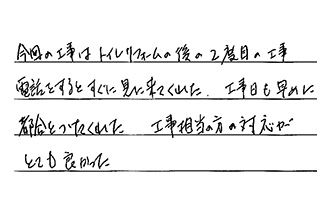 今回の工事はトイレリフォームの後の2度目の工事
電話をするとすぐに見に来てくれた. 工事日も早めに
都合をつけてくれた 工事担当の方の対応が
とても良かった